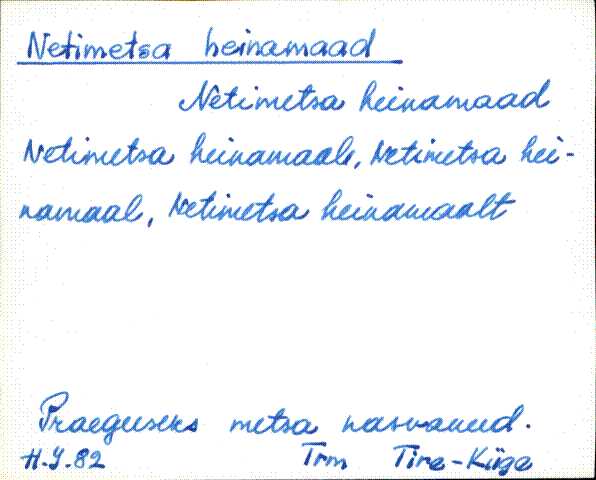 Netimetsa heinamaad
Netimetsa heinamaad
Netimetsa heinamaale, Netimetsa hei-
namaal, Netimetsa heinamaalt
Praeguseks metsa kasvanud.
H.J.82 Trm Tira-Küga